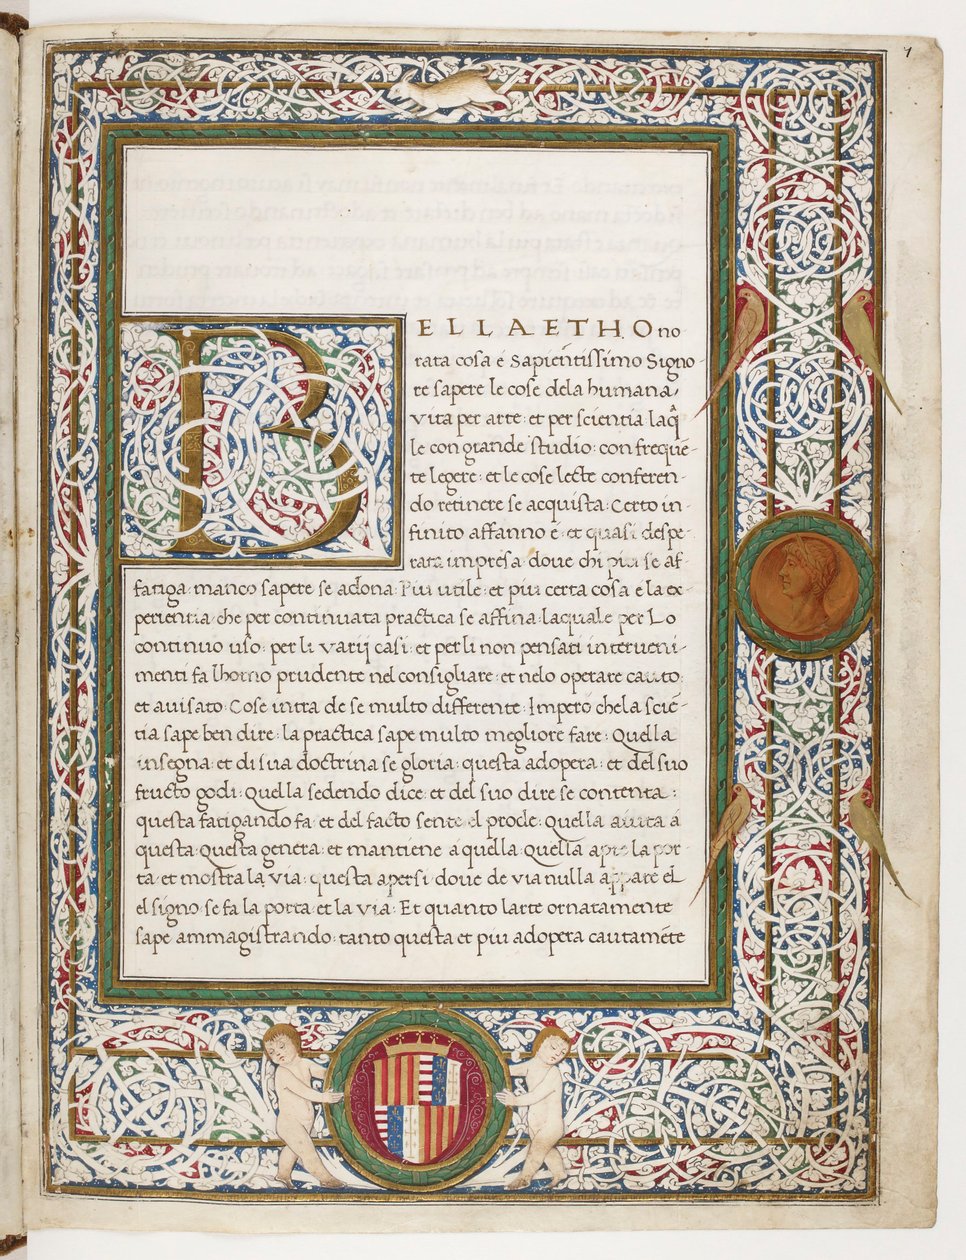 7
BELLA ET HOno
rata cosa é Sapientissimo Signo-
re sapere le cose dela humana
vita per arte: et per scientia laq̃
le con grande studio: con frequẽ-
te legere: et le cose lecte conferen-
do retinere se acquista: Certo in-
finito affanno é: et quasi despe
rata impresa: doue chi piu se af-
fatiga: manco sapere se adona: Piu utile: et piu certa cosa é la ex-
perientia: che per continuata practica se affina: laquale per Lo
continuo uso: per li varij casi: et per li non pensati interueni-
menti fa lhomo prudente nel consigliare: et nelo operare cauto:
et auisato: Cose intra de se multo differente: Imperò che la sciẽ-
tia sape ben dire: la practica sape multo megliore fare: Quella
insegna: et di sua doctrina se gloria: questa adopera: et del suo
fructo godi: Quella sedendo dice: et del suo dire se contenta:
questa fatigando fa: et del facto sente el prode: Quella aiuta á
questa: Questa genera: et mantiene á quella: Quella apre la por-
ta: et mostra la via: questa apersi: doue de via nulla appare el
el signo se fa la porta: et la via: Et quanto larte ornatamente
sape ammagistrando: tanto questa et piu adopera cautamẽte